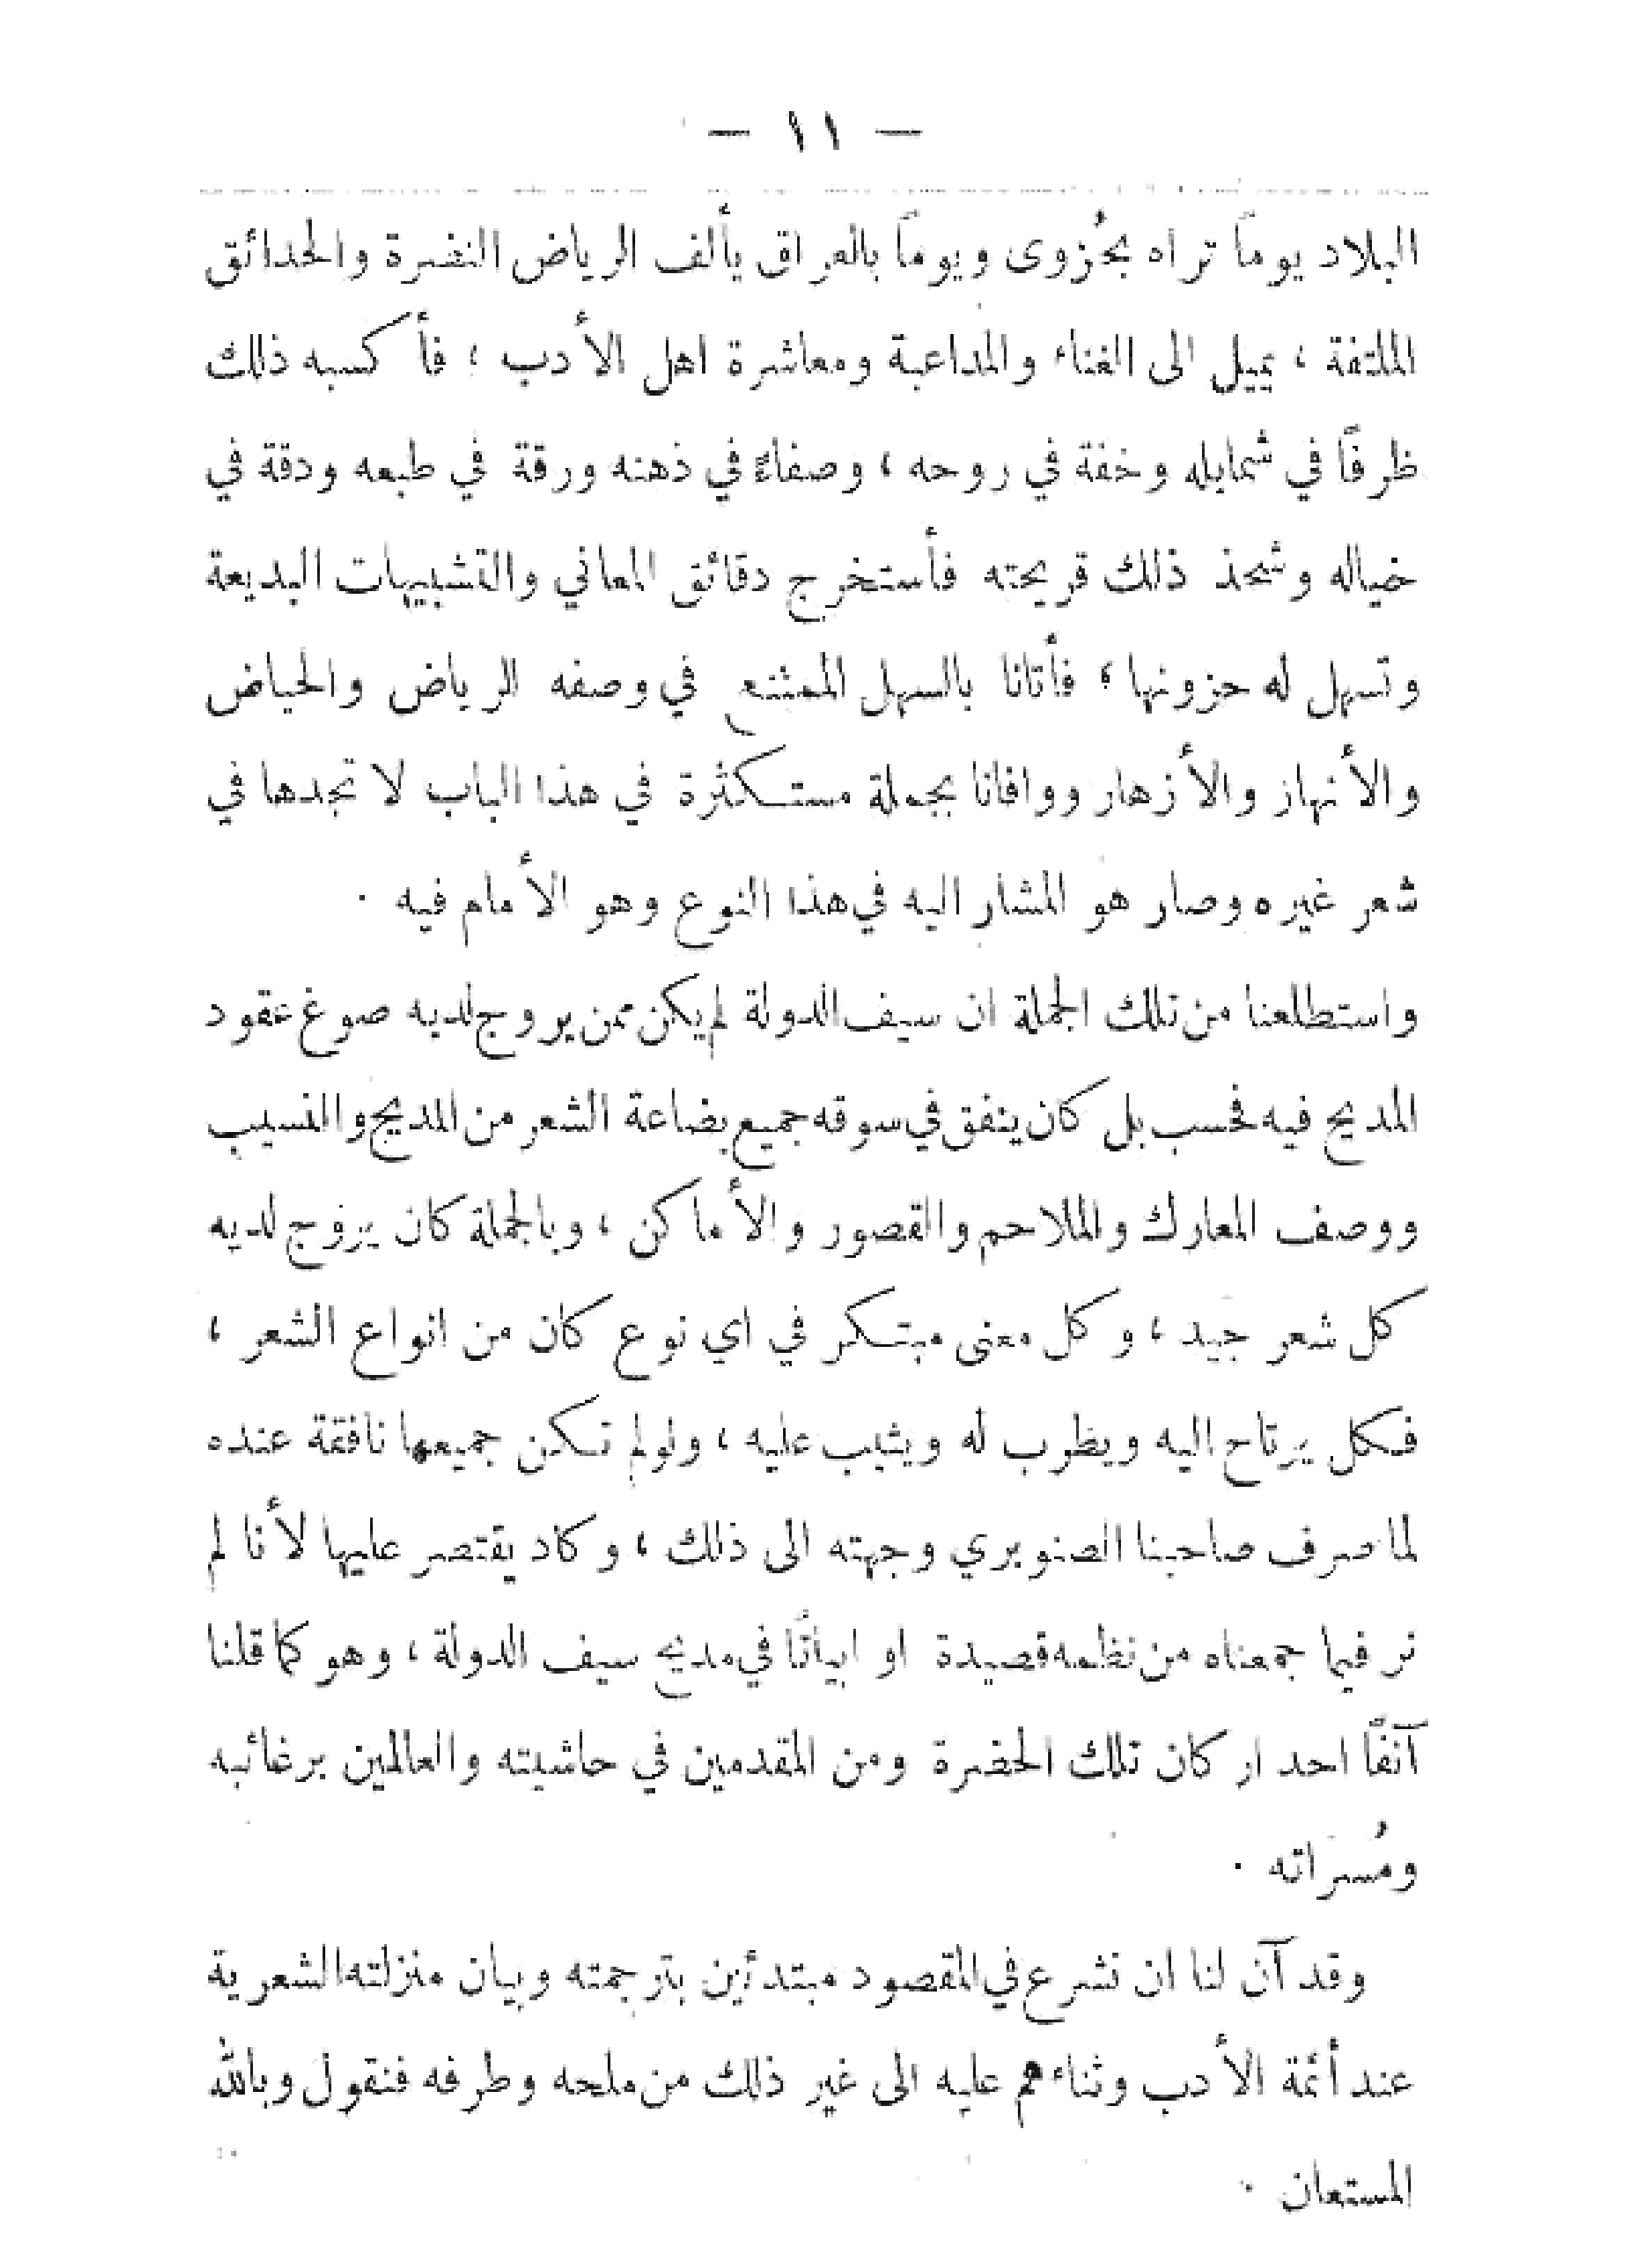 — ١١ —
البلاد يوماً تراه بحُزوى ويوماً بالعراق يألف الرياض النضرة والحدائق
الملتفة ، يميل الى الغناء والمداعبة ومعاشرة اهل الأدب ؛ فأكسبه ذلك
ظرفًا في شمايله وخفة في روحه ، وصفاءً في ذهنه ورقة في طبعه ودقة في
خياله وشحذ ذلك قريحته فأستخرج دقائق المعاني والتشبيهات البديعة
وتسهل له حزونها ؛ فأتانا بالسهل الممتنع في وصفه الرياض والحياض
والأنهاز والأزهار ووافانا بجملة مستكثرة في هذا الباب لا تجدها في
شعر غيره وصار هو المشار اليه في هذا النوع وهو الأمام فيه .
واستطلعنا من تلك الجملة ان سيف الدولة لم يكن ممن يروج لديه صوغ عقود
المديح فيه فحسب بل كان ينفق في سوقه جميع بضاعة الشعر من المديح والنسيب
ووصف المعارك والملاحم والقصور والأماكن ، وبالجملة كان يروج لديه
كل شعر جيد ، وكل معنى مبتكر في اي نوع كان من انواع الشعر ،
فكل يرتاح اليه ويطرب له ويثيب عليه ، ولو لم تكن جميعها نافقة عنده
لما صرف صاحبنا الصنوبري وجهته الى ذلك ، وكاد يقتصر عليها لأنا لم
نر فيما جمعناه من نظمه قصيدة او ابياتًا في مديح سيف الدولة ، وهو كما قلنا
آنفًا احد اركان تلك الحضرة ومن المقدمين في حاشيته والعالمين برغائبه
ومُسراته .
وقد آن لنا ان نشرع في المقصود مبتدئين بترجمته وبيان منزلته الشعرية
عند أئمة الأدب وثناءهم عليه الى غير ذلك من ملحه وطرفه فنقول وبالله
المستعان .